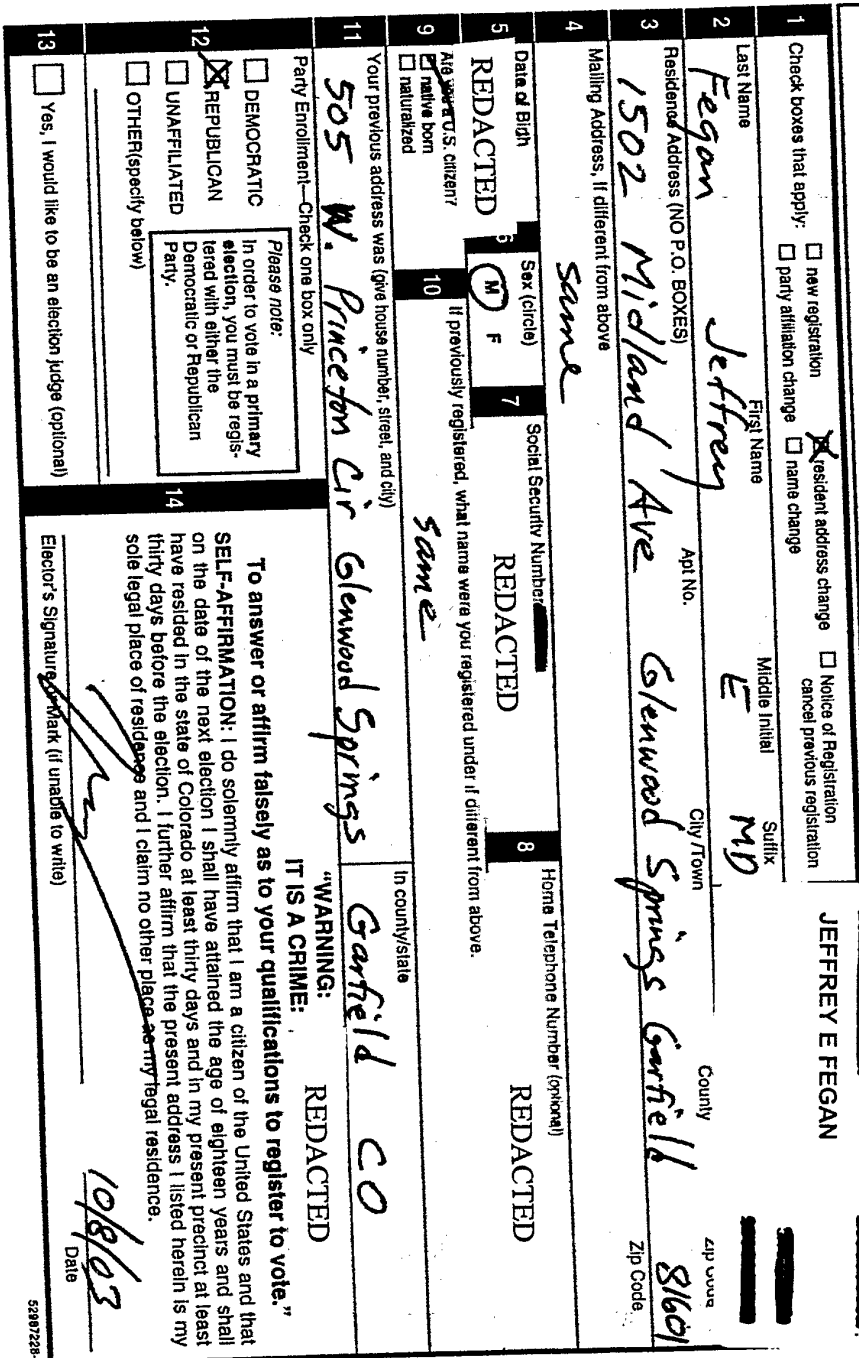 JEFFREY E FEGAN
1
Check boxes that apply: ☐ new registration ☒ resident address change ☐ Notice of Registration
☐ party affiliation change ☐ name change cancel previous registration
2
Last Name First Name Middle Initial Suffix
Fegan Jeffrey E MD
3
Residence Address (NO P.O. BOXES) Apt No. City/Town County Zip Code
1502 Midland Ave Glenwood Springs Garfield 81601
4
Mailing Address, if different from above Zip Code
same
5
Date of Birth
REDACTED
6
Sex (circle)
M F
7
Social Security Number
REDACTED
8
Home Telephone Number (optional)
REDACTED
9
Are you a U.S. citizen?
☒ native born
☐ naturalized
10
If previously registered, what name were you registered under if different from above.
same
11
Your previous address was (give house number, street, and city) In county/state
505 W. Princeton Cir Glenwood Springs Garfield CO
12
Party Enrollment—Check one box only
☐ DEMOCRATIC
☒ REPUBLICAN
☐ UNAFFILIATED
☐ OTHER(specify below)
Please note:
In order to vote in a primary
election, you must be regis-
tered with either the
Democratic or Republican
Party.
13
☐ Yes, I would like to be an election judge (optional)
14
"WARNING:
IT IS A CRIME:
REDACTED
To answer or affirm falsely as to your qualifications to register to vote."
SELF-AFFIRMATION: I do solemnly affirm that I am a citizen of the United States and that
on the date of the next election I shall have attained the age of eighteen years and shall
have resided in the state of Colorado at least thirty days and in my present precinct at least
thirty days before the election. I further affirm that the present address I listed herein is my
sole legal place of residence and I claim no other place as my legal residence.
10/8/03
Elector's Signature or Mark (if unable to write) Date
52987228-